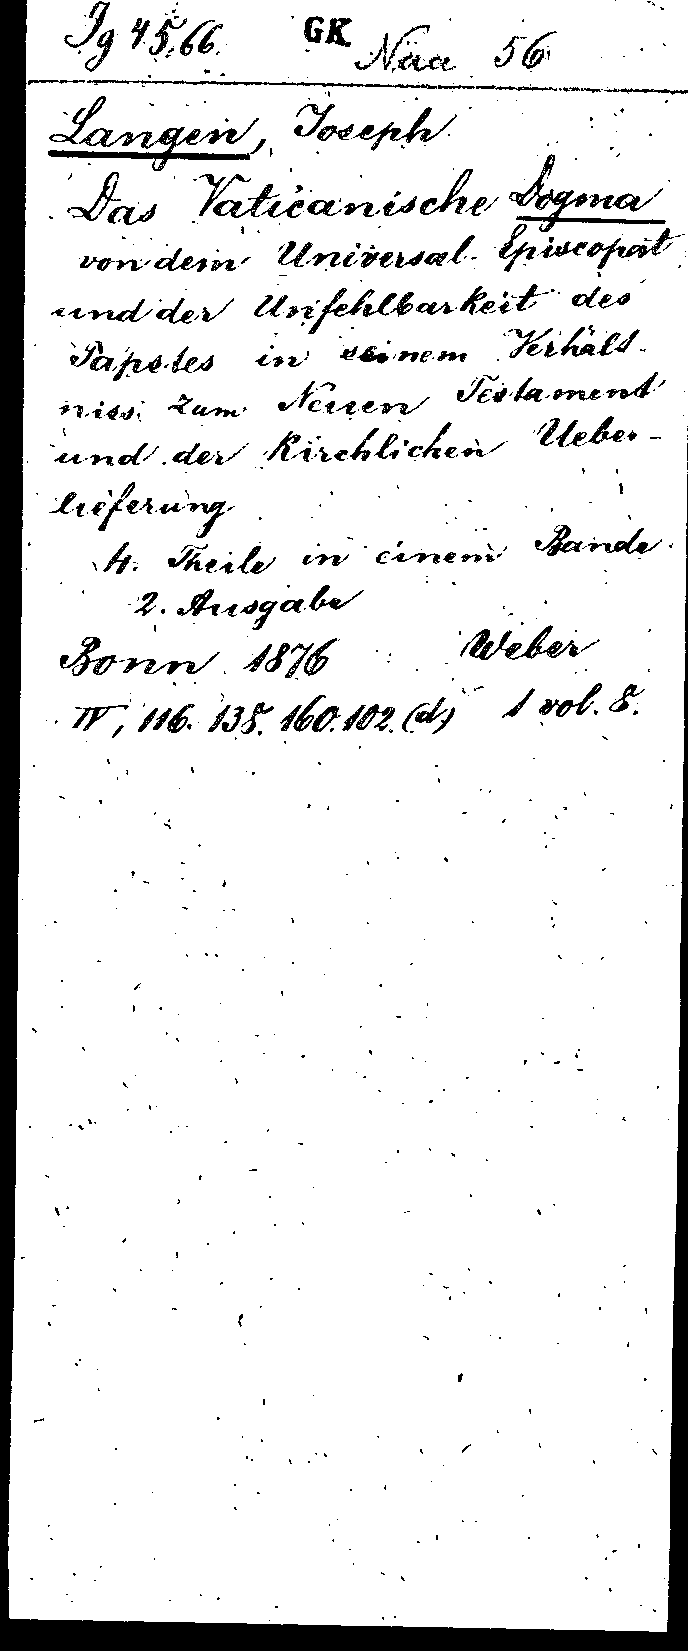 Ig 45,66. GK Naa 56
Langen, Joseph
Das Vaticanische Dogma
von dem Universal-Episcopat
und der Unfehlbarkeit des
Papstes in seinem Verhält-
niss zum Neuen Testament
und der Kirchlichen Ueber-
lieferung
4. Theile in einem Bande
2. Ausgabe
Bonn 1876 Weber
IV, 116. 138. 160. 102. (d) 1 vol. 8.